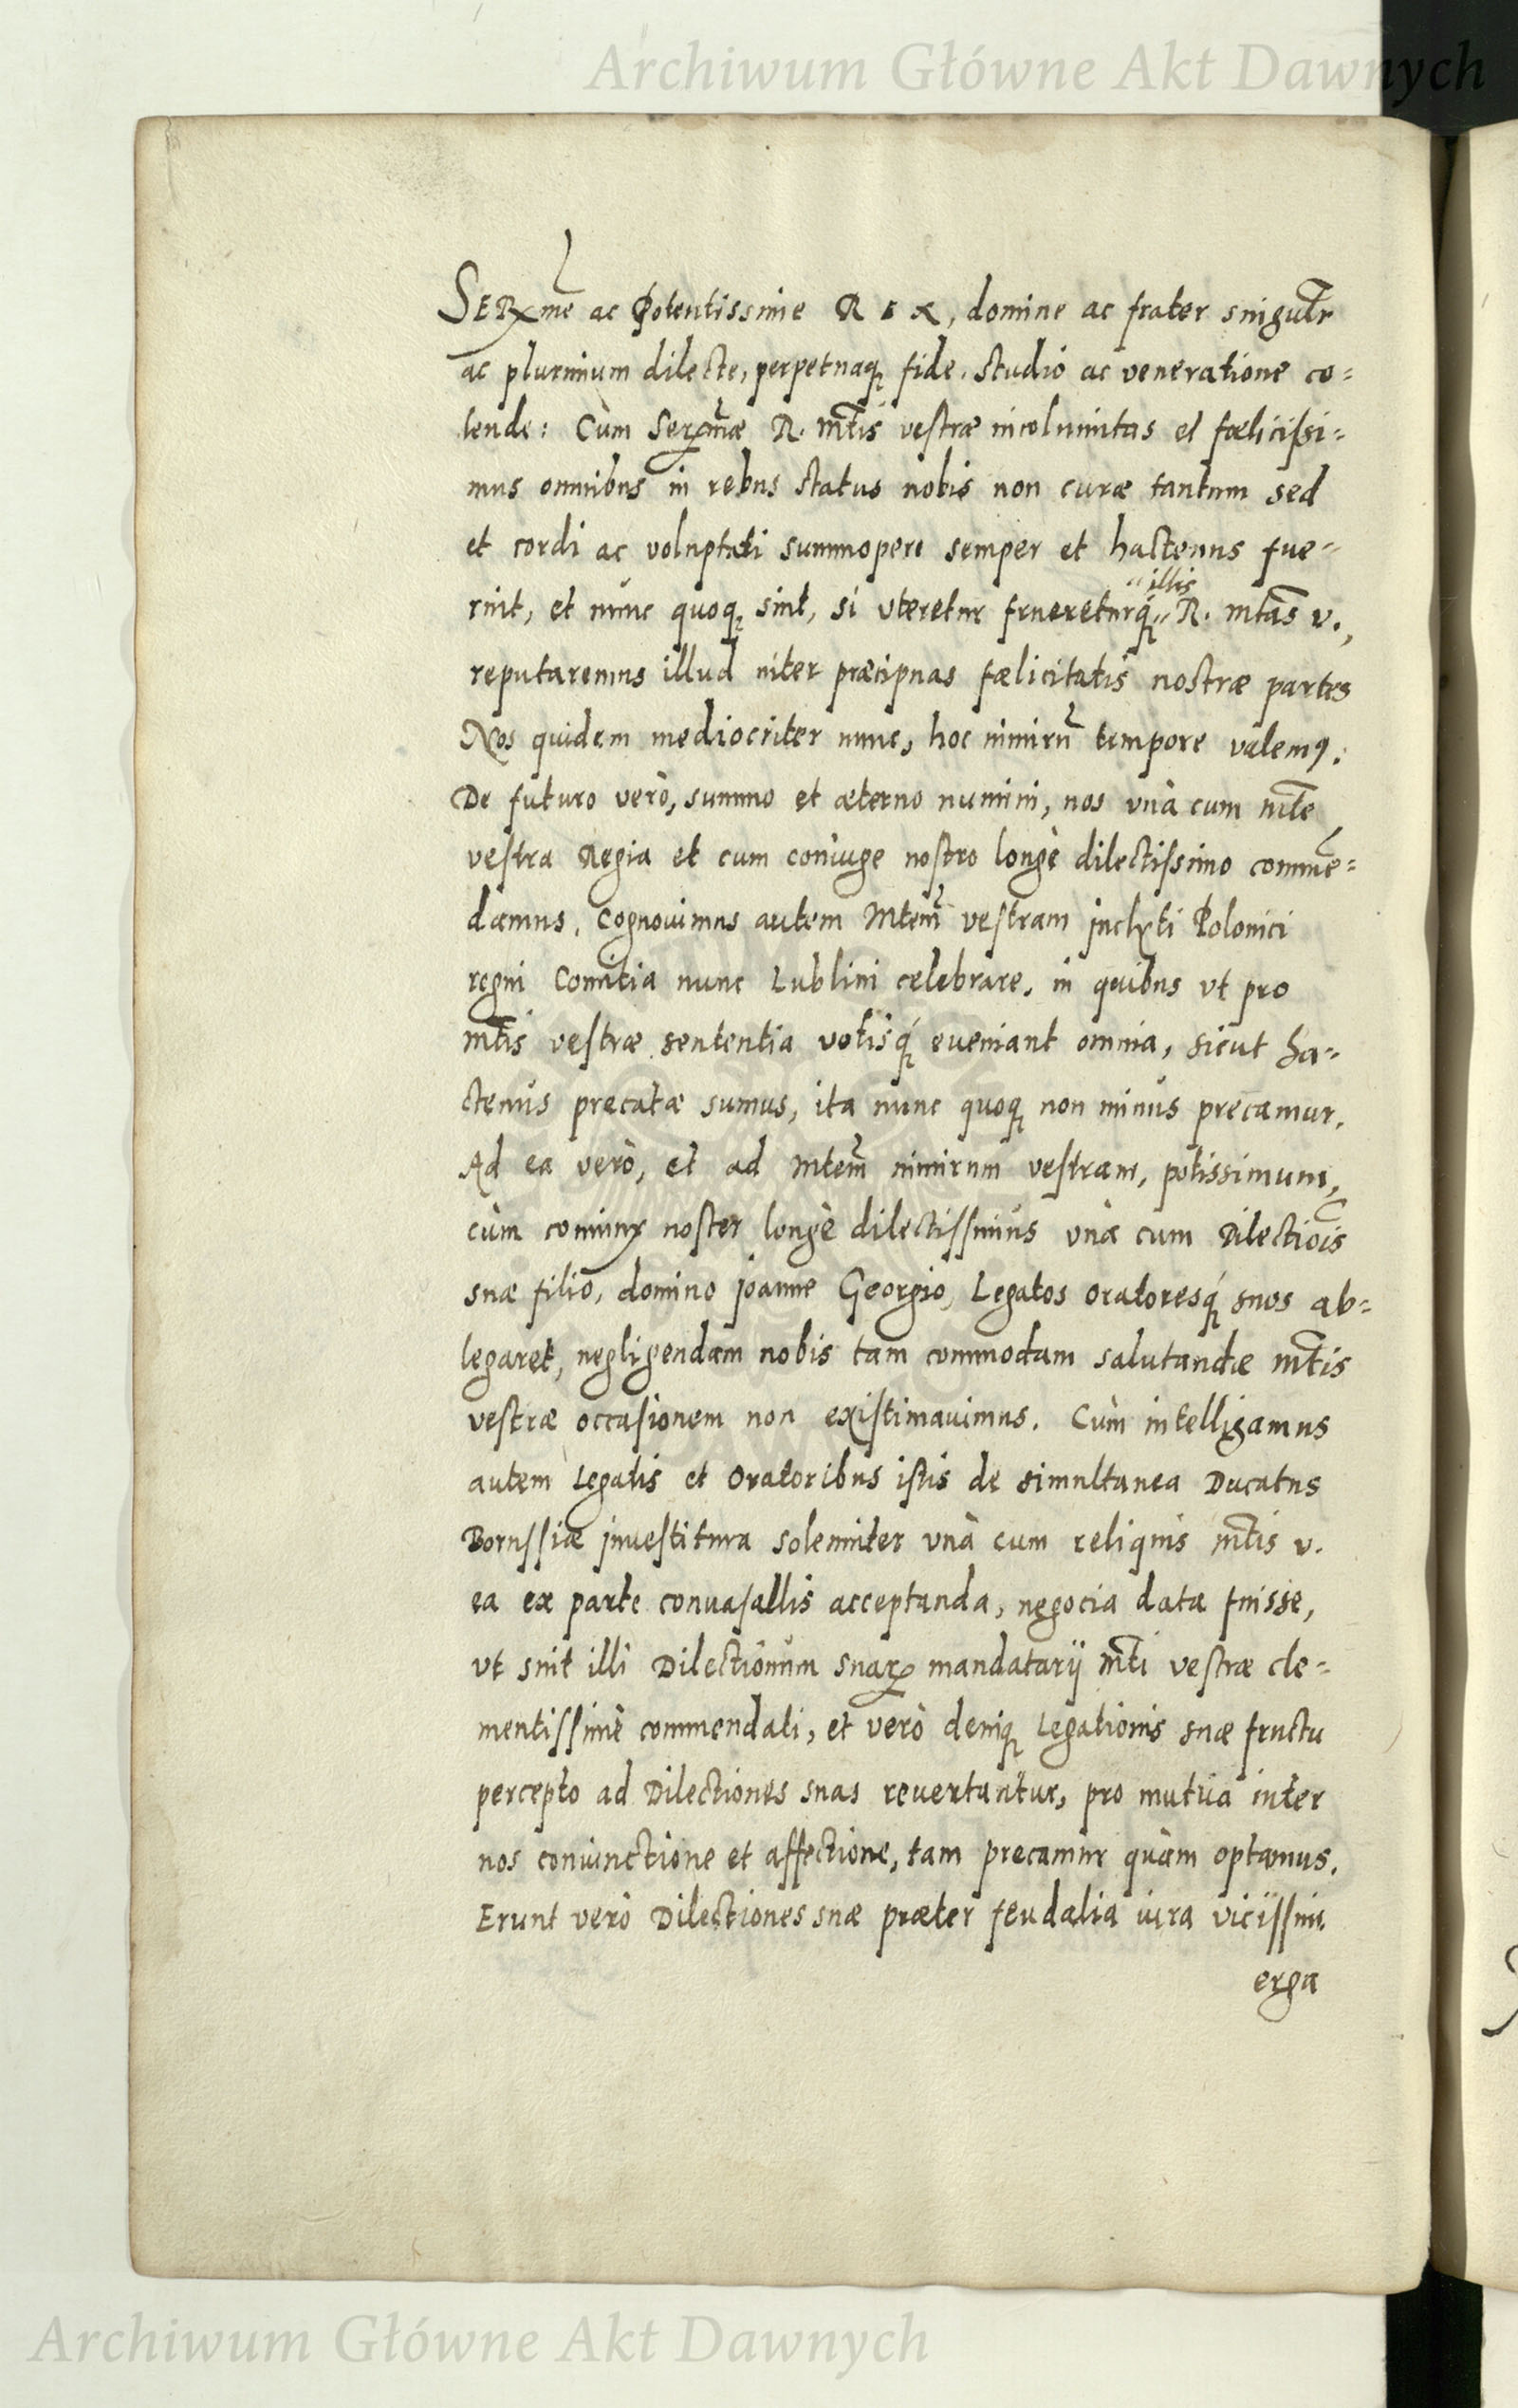 Archiwum Główne Akt Dawnych
SERxme ac Potentissime REX, domine ac frater singulr
ac plurimum dilecte, perpetuaq; fide, studio ac veneratione co=
lende: Cùm Serxmæ R. Mtis vestræ incolumitas et fœlicissi=
mus omnibus in rebus status nobis non curæ tantum sed
et cordi ac voluptati summopere semper et hactenus fue=
rint, et nunc quoq; sint, si vteretur fruereturq́; illis R. Mtas v.,
reputaremus illud inter præcipuas fælicitatis nostræ partes
Nos quidem mediocriter nunc, hoc nimirũ tempore valemꝰ.
De futuro verò, summo et æterno numini, nos vnà cum Mte
vestra Regia et cum coniuge nostro longè dilectissimo commē=
damus. Cognouimus autem Mtem vestram jnclyti Polonici
regni Comitia nunc Lublini celebrare, in quibus vt pro
Mtis vestræ sententia votisq́; eueniant omnia, sicut ha=
ctenus precatæ sumus, ita nunc quoq; non minus precamur.
Ad ea verò, et ad Mtem nimirum vestram, potissimum,
cùm coniunx noster longè dilectissimus vnà cum Dilectiõis
suæ filio, domino joanne Georgio, Legatos Oratoresq́; suos ab=
legaret, negligendam nobis tam commodam salutandæ Mtis
vestræ occasionem non existimauimus. Cùm intelligamus
autem Legatis et Oratoribus istis de simultanea Ducatus
Borussiæ jnuestitura solemniter vnà cum reliquis Mtis v.
ea ex parte conuasallis acceptanda, negocia data fuisse,
vt sint illi Dilectionum suarꝝ mandatarij Mti vestræ cle=
mentissimè commendati, et verò deniq; Legationis suæ fructu
percepto ad Dilectiones suas reuertantur, pro mutua inter
nos coniunctione et affectione, tam precamur quàm optamus.
Erunt verò Dilectiones suæ præter feudalia iura vicissim
erga
Archiwum Główne Akt Dawnych